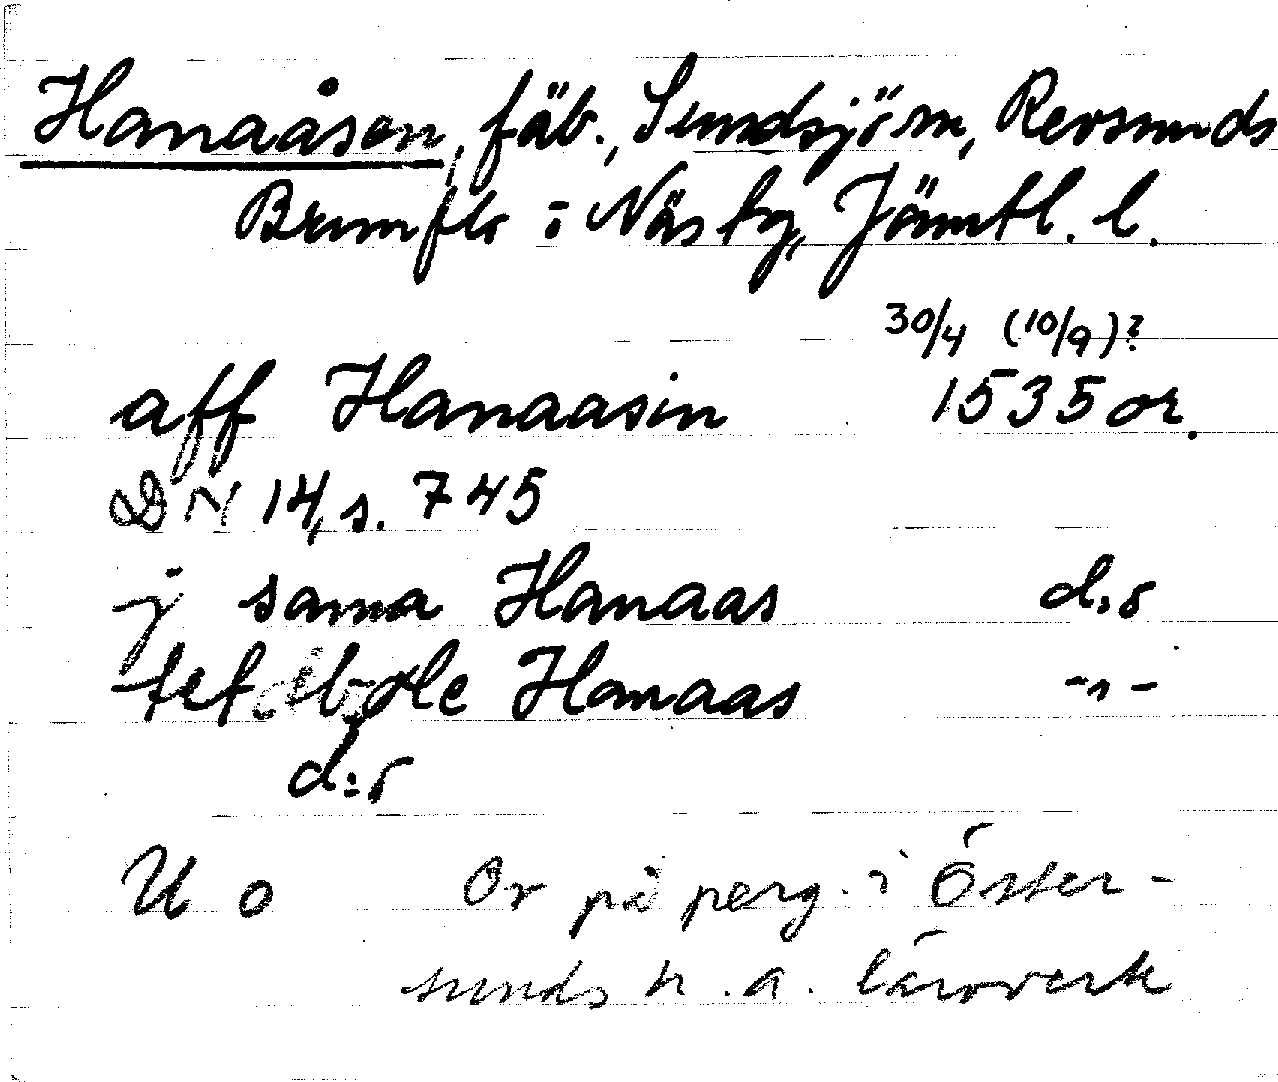 Hanaåsen, fäb., Sundsjö sn, Revsunds
Brunflo o Näs tg, Jämtl. l.
30/4 (10/9)?
aff Hanaasin 1535 or.
DN 14, s. 745
j sama Hanaas d:o
Hanaas -"-
d:o
U o Or på perg. i Öster-
sunds h. a. lärovverk